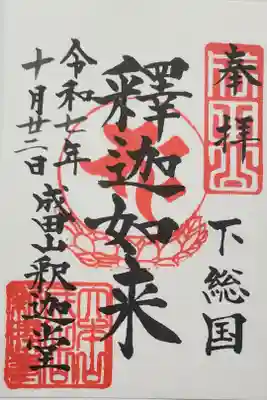 奉拝
下総国
釋迦如来
令和七年
十月廿二日
成田山釈迦堂